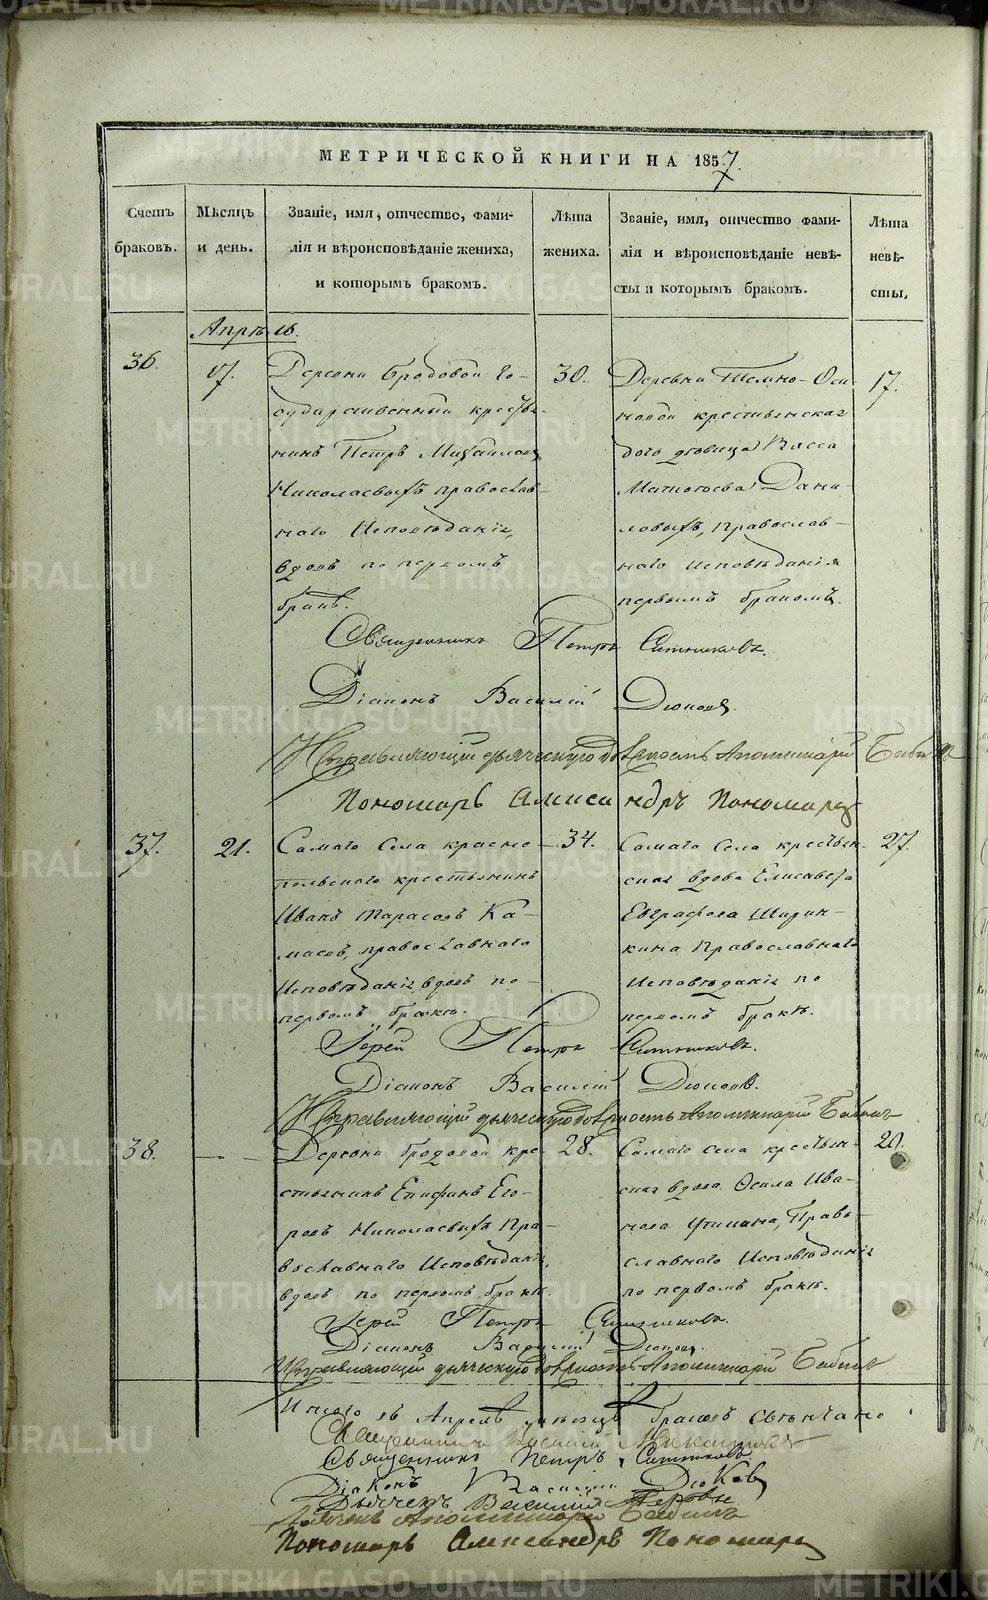 МЕТРИЧЕСКОЙ КНИГИ НА 1857
Счетъ браковъ.
Мѣсяцъ и день.
Званіе, имя, отчество, фами-
лія и вѣроисповѣданіе жениха,
и которымъ бракомъ.
Лѣта жениха.
Званіе, имя, отчество фами-
лія и вѣроисповѣданіе невѣ-
сты и которымъ бракомъ.
Лѣта невѣ-
сты.
Апрѣль.
36.
17.
Деревни Бродовой Го-
сударственный крестья-
нинъ Петръ Михайловъ
Николаевыхъ православ-
наго Исповѣданія,
вдовъ по первомъ
бракѣ.
30.
Деревни Темно-Оси
новой крестьянская
дѣвица Васса
Данि-
ловыхъ, православ-
наго исповѣданія
первымъ бракомъ.
17.
Священникъ Петръ Ситниковъ.
Діаконъ Василій Дюковъ.
Исправляющій дьяческую должность Аполлинарій Бабинъ
Пономарь Александръ Пономаревъ
37.
21.
Самаго Села красно-
польскаго крестьянинъ
Иванъ Тарасовъ Ка-
масовъ, православнаго
Исповѣданія, вдовъ по
первомъ бракѣ.
34.
Самаго Села крестьян-
ская вдова Елисавета
Евграфова Ширин-
кина Православнаго
Исповѣданія по
первомъ бракѣ.
27.
Іерей Петръ Ситниковъ.
Діаконъ Василій Дюковъ.
Исправляющій дьяческую должность Аполлинарій Бабинъ
38.
Деревни Бродовой кре-
стьянинъ Епифанъ Его-
ровъ Николаевыхъ Пра-
вославнаго Исповѣданія,
вдовъ по первомъ бракѣ.
28.
Самаго села крестьян-
ская вдова Ива-
нова Право-
славнаго Исповѣданія
по первомъ бракѣ.
20.
Іерей Петръ Ситниковъ.
Діаконъ Василій Дюковъ.
Исправляющій дьяческую должность Аполлинарій Бабинъ
Итого въ Апрѣлѣ мѣсяцѣ браковъ свѣнчано
Священникъ
Священникъ Петръ Ситниковъ
Діаконъ Василій Дюковъ
Дьячекъ Василій
Дьячекъ Аполлинарій Бабинъ
Пономарь Александръ Пономаревъ
METRIKI.GASO-URAL.RU